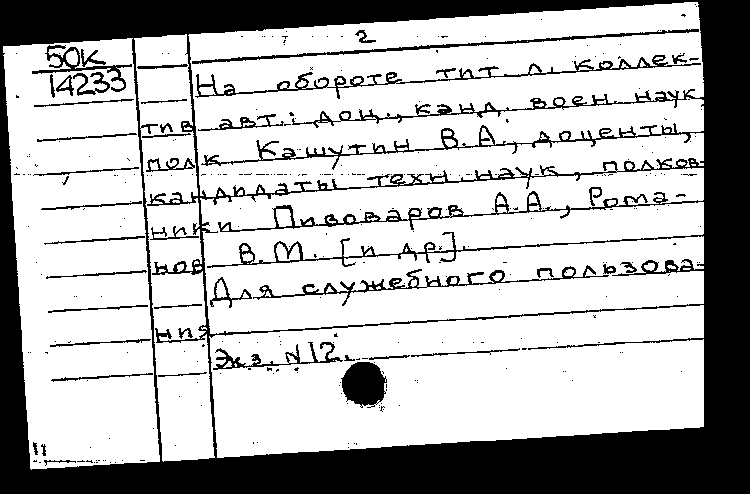 2
50К
14233
На обороте тит. л. коллек-
тив авт.: доц., канд. воен. наук,
полк Кашутин В.А., доценты,
кандидаты техн. наук, полков-
ники Пивоваров А.А., Рома-
нов В.М. [и др.].
Для служебного пользова-
ния.
Экз. N 12.